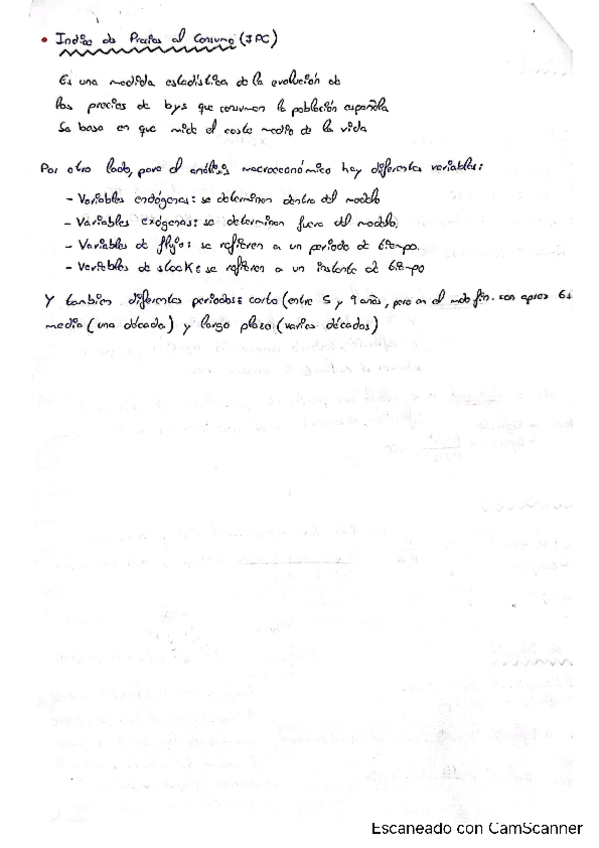 • Indice de Precios al Consumo (IPC)
Es una medida estadística de la evolución de
los precios de bys que consumen la población española
Se basa en que mide el coste medio de la vida
Por otro lado, para el análisis macroeconómico hay diferentes variables:
- Variables endógenas: se determinan dentro del modelo
- Variables exógenas: se determinan fuera del modelo.
- Variables de flujo: se refieren a un periodo de tiempo.
- Variables de stock: se refieren a un instante de tiempo
Y tambien diferentes periodos: corto (entre 5 y 9 años, pero en el mdo fin. son aprox 6
medio (una década) y largo plazo (varias décadas)
Escaneado con CamScanner